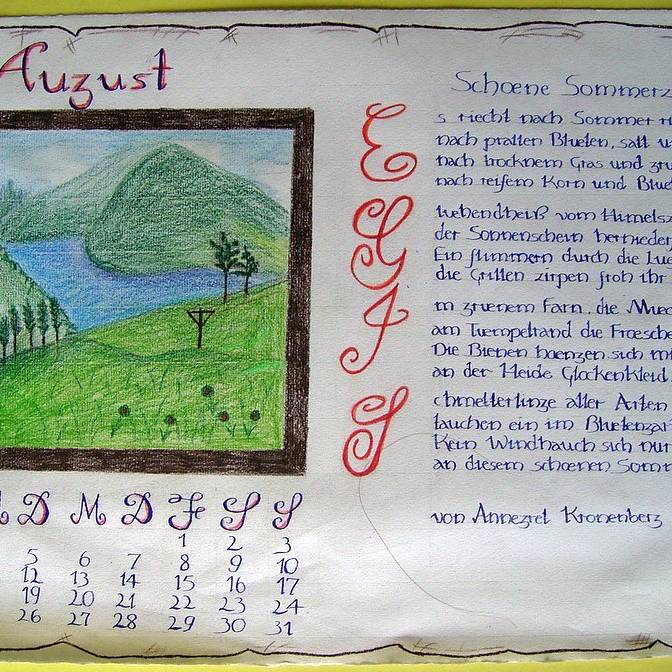 August
Schoene Sommerz
E s riecht nach Sommer
nach prallen Blueten, satt
nach trocknem Gras und
nach reifem Korn und
G luehendheiß vom Himels
der Sonnenschein hernieder
Ein flimmern durch die
die Grillen zirpen froh ihr
I m gruenem Farn, die
am Tuempelrand die Froesche
Die Bienen haengen sich
an der Heide Glockenkleid
S chmetterlinge aller Arten
tauchen ein im
Kein Windhauch sich nur
an diesem schoenen
von Annegret Kronenberg
D M D F S S
1 2 3
5 6 7 8 9 10
12 13 14 15 16 17
19 20 21 22 23 24
26 27 28 29 30 31